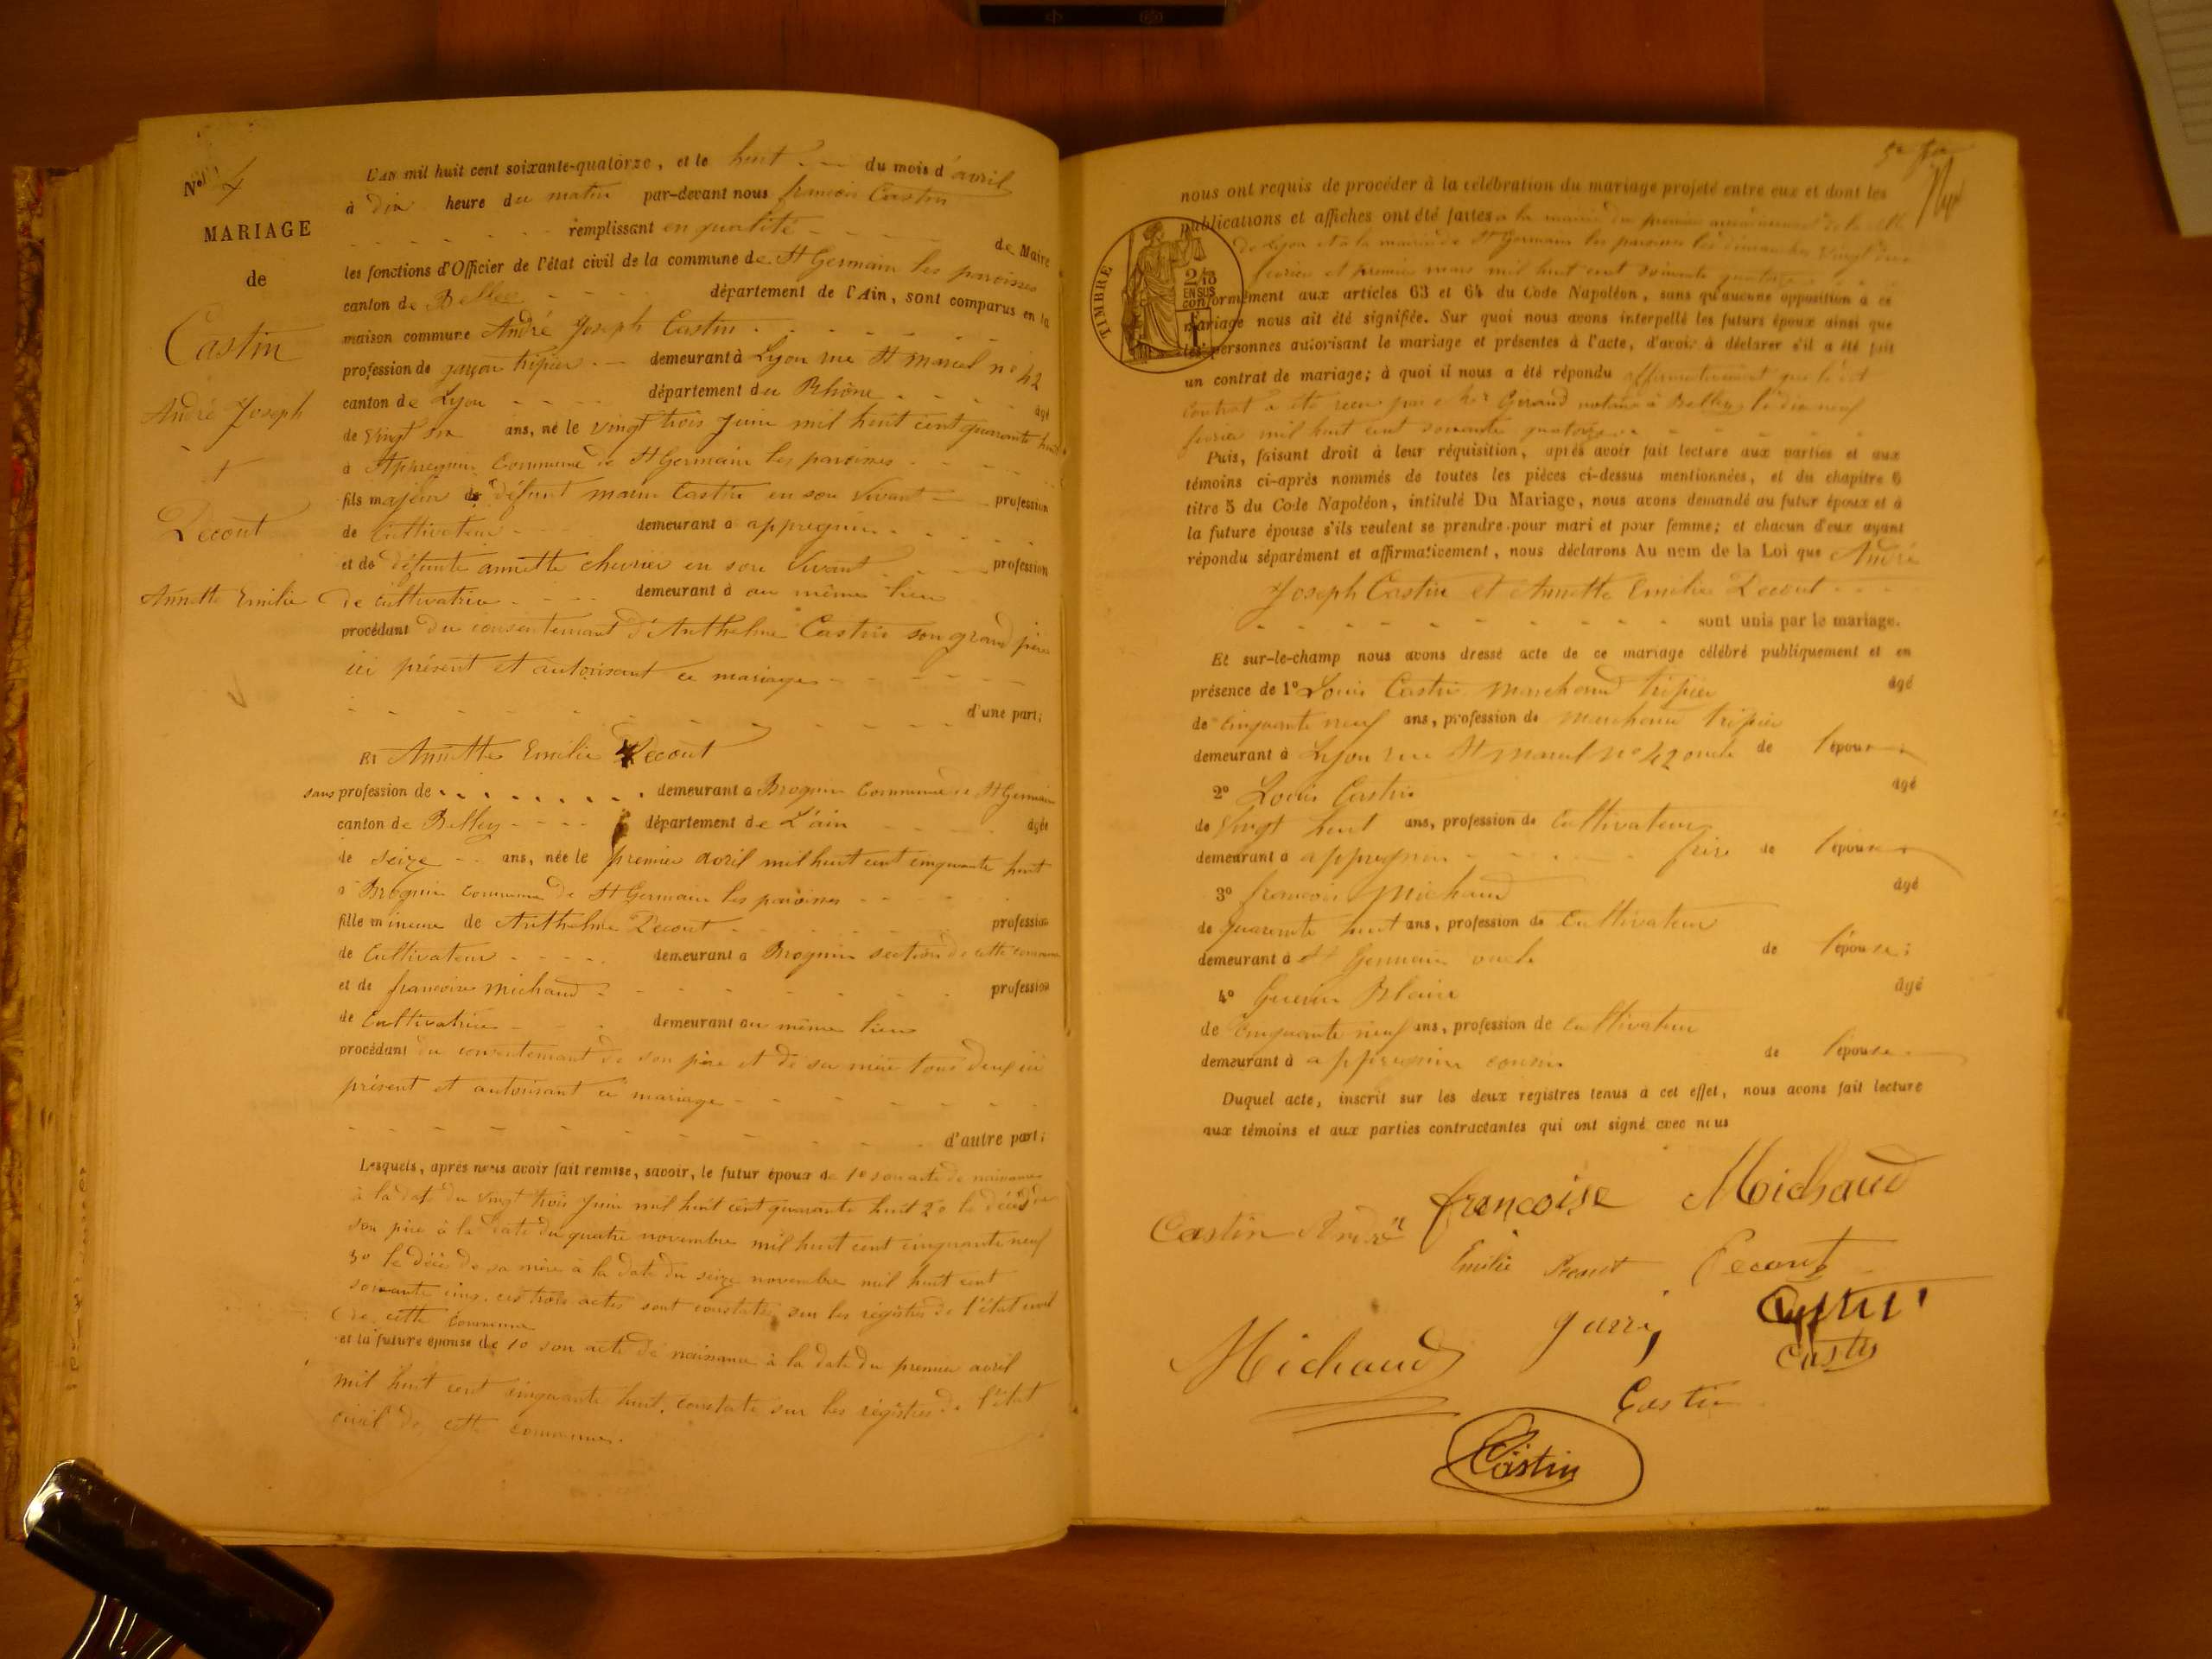 N° 4
MARIAGE
de
Castin
André Joseph
+
Decout
Annette Emilie
L'an mil huit cent soixante-quatorze, et le huit du mois d'avril
à dix heure du matin par-devant nous francois Castin
remplissant en qualité de Maire
les fonctions d'Officier de l'état civil de la commune de St Germain les paroisses
canton de Belley département de l'Ain, sont comparus en la
maison commune André Joseph Castin
profession de garçon tripier demeurant à Lyon rue St marcel n° 42
canton de Lyon département du Rhône âgé
de vingt six ans, né le vingt trois juin mil huit cent quarante huit
à Appregnin Commune de St Germain les paroisses
fils majeur de défunt marin Castin en son vivant profession
de Cultivateur demeurant à appregnin
et de défunte annette chevrier en son vivant profession
de cultivatrice demeurant à au même lieu
procédant du consentement d'Anthelme Castin son grand père
ici présent et autorisant ce mariage
d'une part;
Et Annette Emilie Decout
sans profession de demeurant à Brognin Commune de St Germain
canton de Belley département de L'ain âgée
de seize ans, née le premier avril mil huit cent cinquante huit
à Brognin commune de St Germain les paroisses
fille mineure de Anthelme Decout profession
de Cultivateur demeurant à Brognin section de cette commune
et de francoise michaud profession
de Cultivatrice demeurant au même lieu
procédant du consentement de son père et de sa mère tous deux ici
présent et autorisant ce mariage
d'autre part;
Lesquels, après nous avoir fait remise, savoir, le futur époux de 1° son acte de naissance
à la date du vingt trois juin mil huit cent quarante huit 2° le décès de
son père à la date du quatre novembre mil huit cent cinquante neuf
3° le décès de sa mère à la date du seize novembre mil huit cent
soixante cinq, ces trois actes sont constatés sur les registres de l'état civil
de cette commune
et la future épouse de 1° son acte de naissance à la date du premier avril
mil huit cent cinquante huit, constaté sur les registres de l'état
civil de cette commune.
nous ont requis de procéder à la célébration du mariage projeté entre eux et dont les
publications et affiches ont été faites à la mairie du premier arrondissement de la ville
de Lyon et à la mairie de St Germain les paroisses les dimanches vingt deux
fevrier et premier mars mil huit cent soixante quatorze
TIMBRE
2/10
EN SUS
conformément aux articles 63 et 64 du Code Napoléon, sans qu'aucune opposition à ce
mariage nous ait été signifiée. Sur quoi nous avons interpellé les futurs époux ainsi que
les personnes autorisant le mariage et présentes à l'acte, d'avoir à déclarer s'il a été fait
un contrat de mariage; à quoi il nous a été répondu affirmativement que le dit
contrat a été recu par Gerand notaire à Belley le dix neuf
fevrier mil huit cent soixante quatorze
Puis, faisant droit à leur réquisition, après avoir fait lecture aux parties et aux
témoins ci-après nommés de toutes les pièces ci-dessus mentionnées, et du chapitre 6
titre 5 du Code Napoléon, intitulé Du Mariage, nous avons demandé au futur époux et à
la future épouse s'ils veulent se prendre pour mari et pour femme; et chacun d'eux ayant
répondu séparément et affirmativement, nous déclarons Au nom de la Loi que André
Joseph Castin et Annette Emilie Decout
sont unis par le mariage.
Et sur-le-champ nous avons dressé acte de ce mariage célébré publiquement et en
présence de 1° Louis Castin marchand tripier âgé
de cinquante neuf ans, profession de marchand tripier
demeurant à Lyon rue St marcel n° 42 oncle de l'époux
2° Louis Castin âgé
de vingt huit ans, profession de Cultivateur
demeurant à appregnin frère de l'époux
3° francois Michaud âgé
de quarante huit ans, profession de Cultivateur
demeurant à St Germain oncle de l'épouse;
4° Guerin Blaise âgé
de cinquante neuf ans, profession de cultivateur
demeurant à appregnin cousin de l'épouse
Duquel acte, inscrit sur les deux registres tenus à cet effet, nous avons fait lecture
aux témoins et aux parties contractantes qui ont signé avec nous
françoise Michaud
Castin André
Emilie Decout Decout
Castin
Michaud
Castin
Castin
Castin